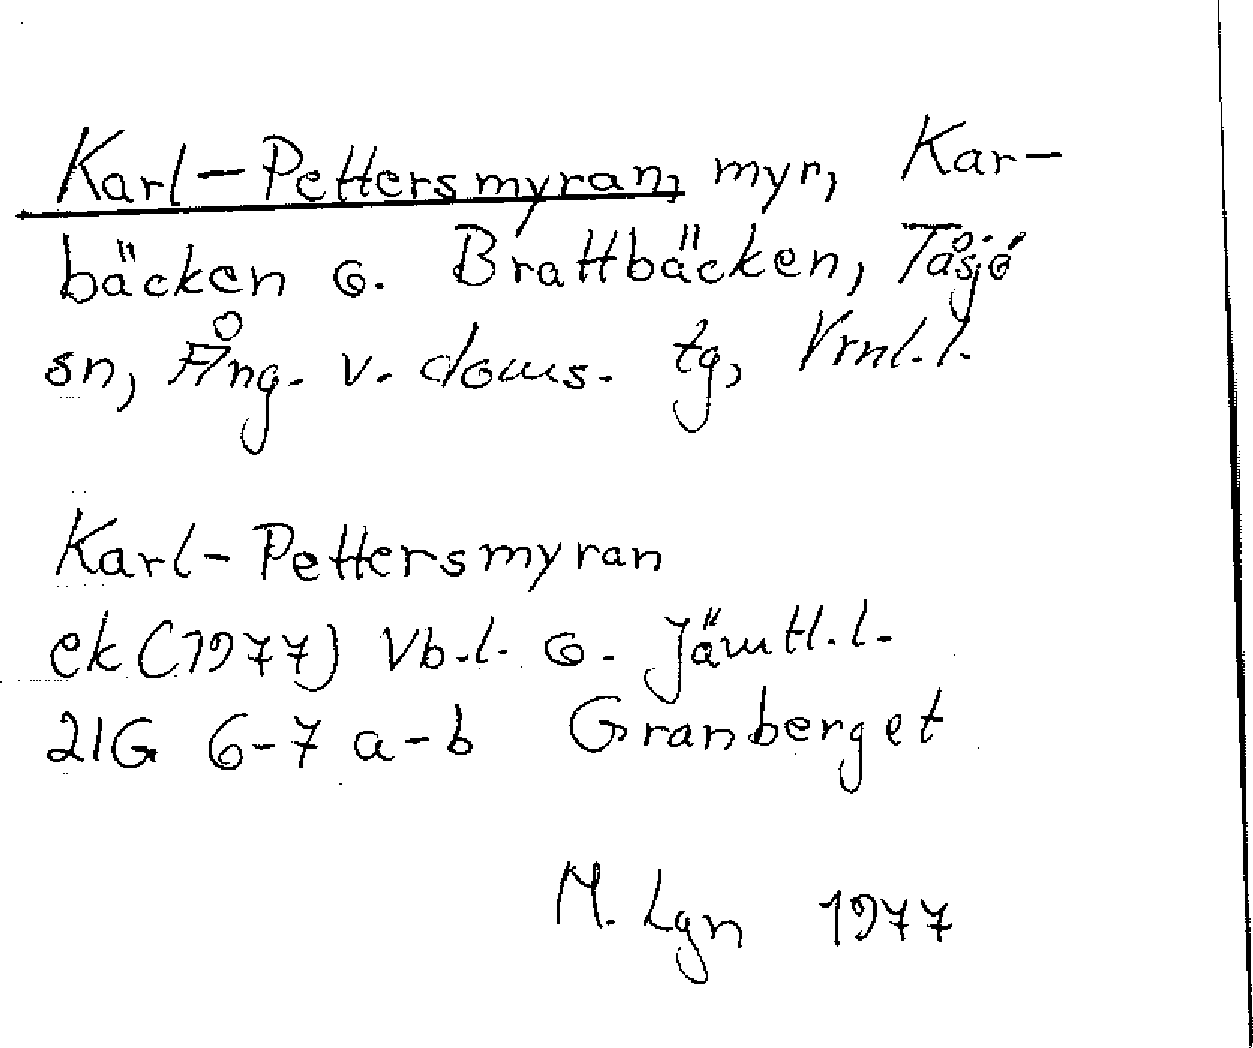 Karl-Pettersmyran, myr, Kar-
bäcken o. Brattbäcken, Tåsjö
sn, Ång. v. doms. tg, Vrnl.l.
Karl-Pettersmyran
ek (1977) Vb.l. o. Jämtl.l.
21G 6-7 a-b Granberget
M. Lgn 1977